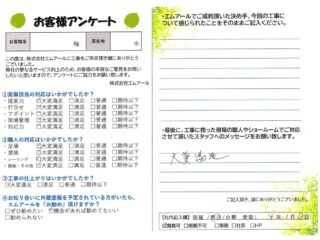 お客様アンケート
お客様名 様 居住市 市
この度は、株式会社エムアールに工事をご用命頂き誠にありがとうございました。
株式会社エムアール
①営業担当の対応はいかがでしたか?
・提案力 ☑大変満足 □満足 □普通 □期待以下
・打合せ ☑大変満足 □満足 □普通 □期待以下
・アポイント ☑大変満足 □満足 □普通 □期待以下
・現場管理 ☑大変満足 □満足 □普通 □期待以下
・対応力 ☑大変満足 □満足 □普通 □期待以下
②職人の対応はいかがでしたか?
・足場 ☑大変満足 □満足 □普通 □期待以下
・塗装 ☑大変満足 □満足 □普通 □期待以下
・シーリング □大変満足 □満足 □普通 □期待以下
□大変満足 □満足 □普通 □期待以下
③工事の仕上りはいかがでしたか?
☑大変満足 □満足 □普通 □期待以下
④お知り合いに外壁塗装を予定されている方がいたら、
エムアールを「お勧め」頂けますか?
□ぜひ勧めたい ☑機会があれば勧めてもいい
□勧められない
・エムアールでご成約頂いた決め手、今回の工事に
ついて感じられたことをそのままご記入ください。
・最後に、工事に携った現場の職人やショールームでご対応
させて頂いたスタッフへのメッセージをお願い致します。
大変満足
ご記入頂き、誠にありがとうございました。
【社内記入欄】